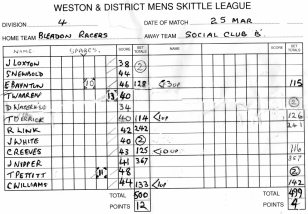 WESTON & DISTRICT MENS SKITTLE LEAGUE
DIVISION 4 DATE OF MATCH 25 MAR
HOME TEAM BLEADON RACERS AWAY TEAM SOCIAL CLUB B'
NAME SPARES SCORE SET TOTALS NAME SCORE SET TOTALS
J LOXTON 38 2
S NEWBOLD 44
E BAYNTON 10 46 128 13up 115
T WARREN 13 40
D 34 2
T DERRICK 40 114 1up 126
R LINK 42 242 241
J WHITE 40 2
C REEVES 43 125 10up 116
J NIPPER 41 367 357
T PETTITT 11 48
C WILLIAMS 44 133 1up 142
TOTAL 500 TOTAL 499
POINTS 12 POINTS 4